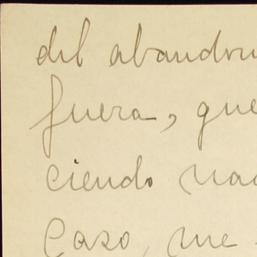 del abandon
fuera, que
ciendo nad
Caso, me